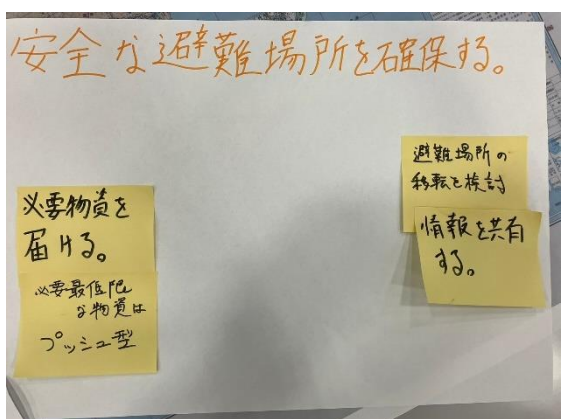 安全な避難場所を確保する。
必要物資を
届ける。
必要最低限
な物資は
プッシュ型
避難場所の
移転を検討
情報を共有
する。